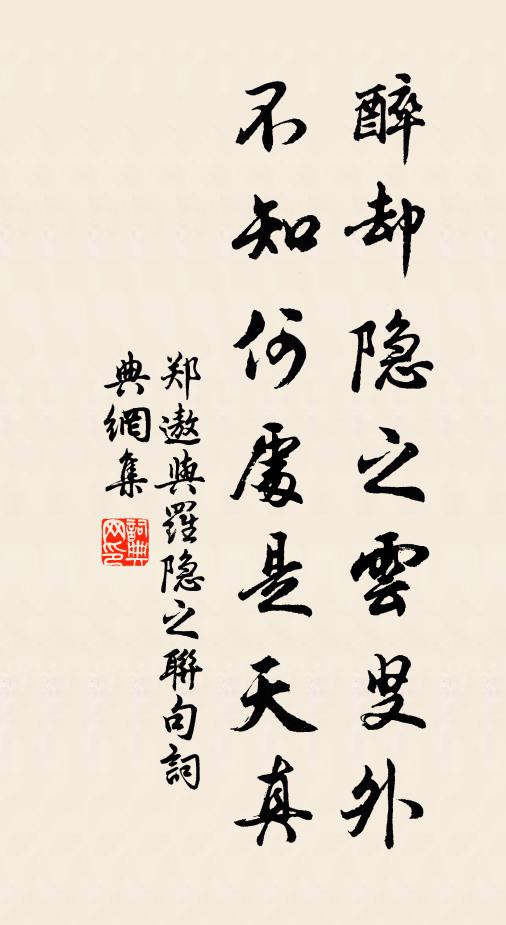 醉却隐之雲叟外
不知何處是天真
郑遨與羅隐之聯句詞
典網集
詞典
网印